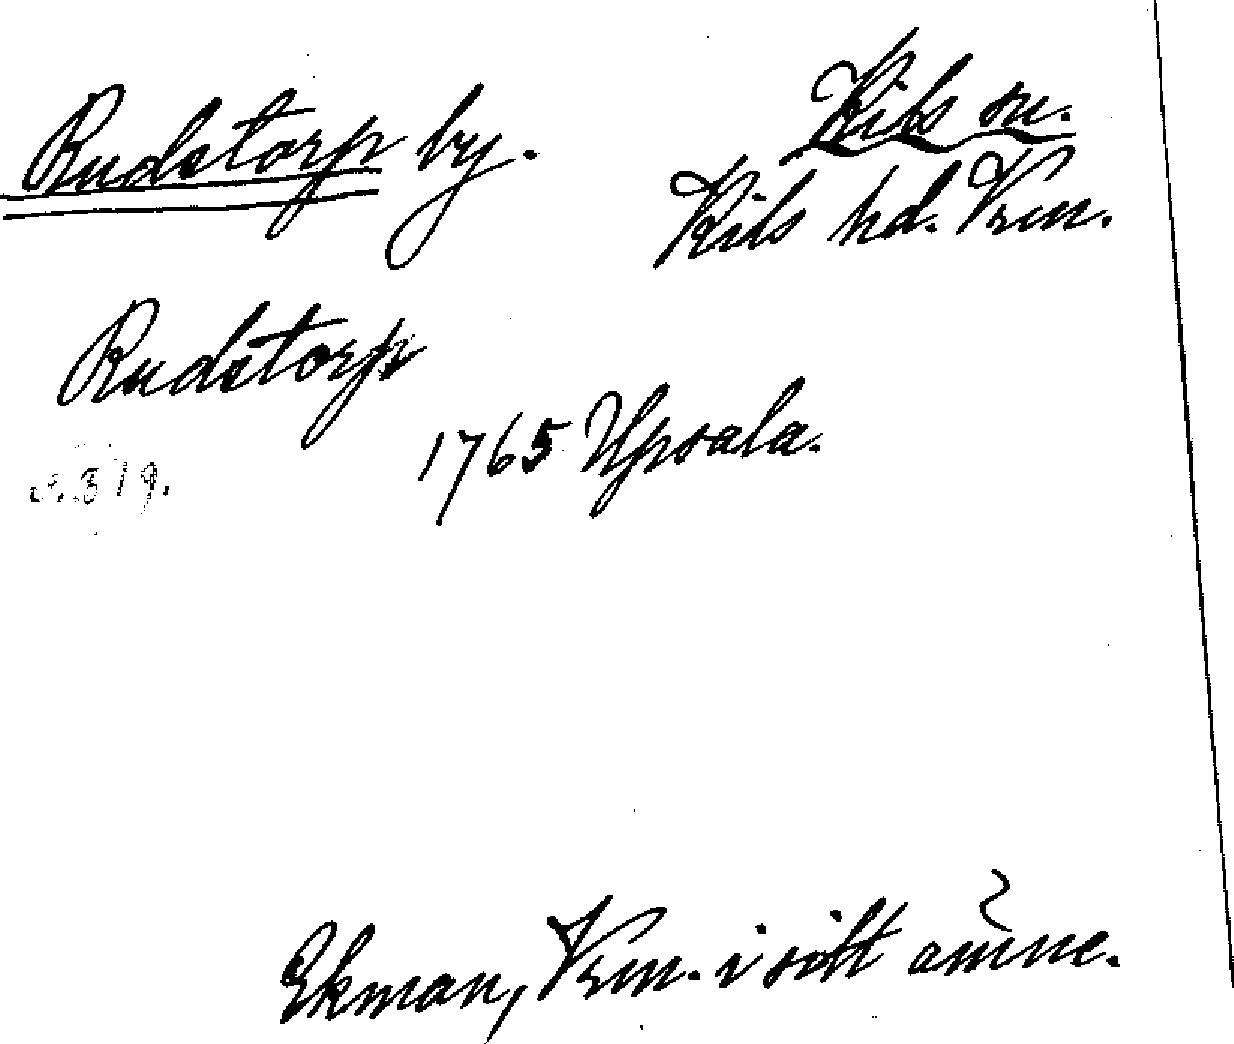 Rudstorp by.
Kils sn.
Kils hd. Vrm.
Rudstorp
1765 Upsala.
s. 319.
Ekman, Vrm. i sitt ämne.